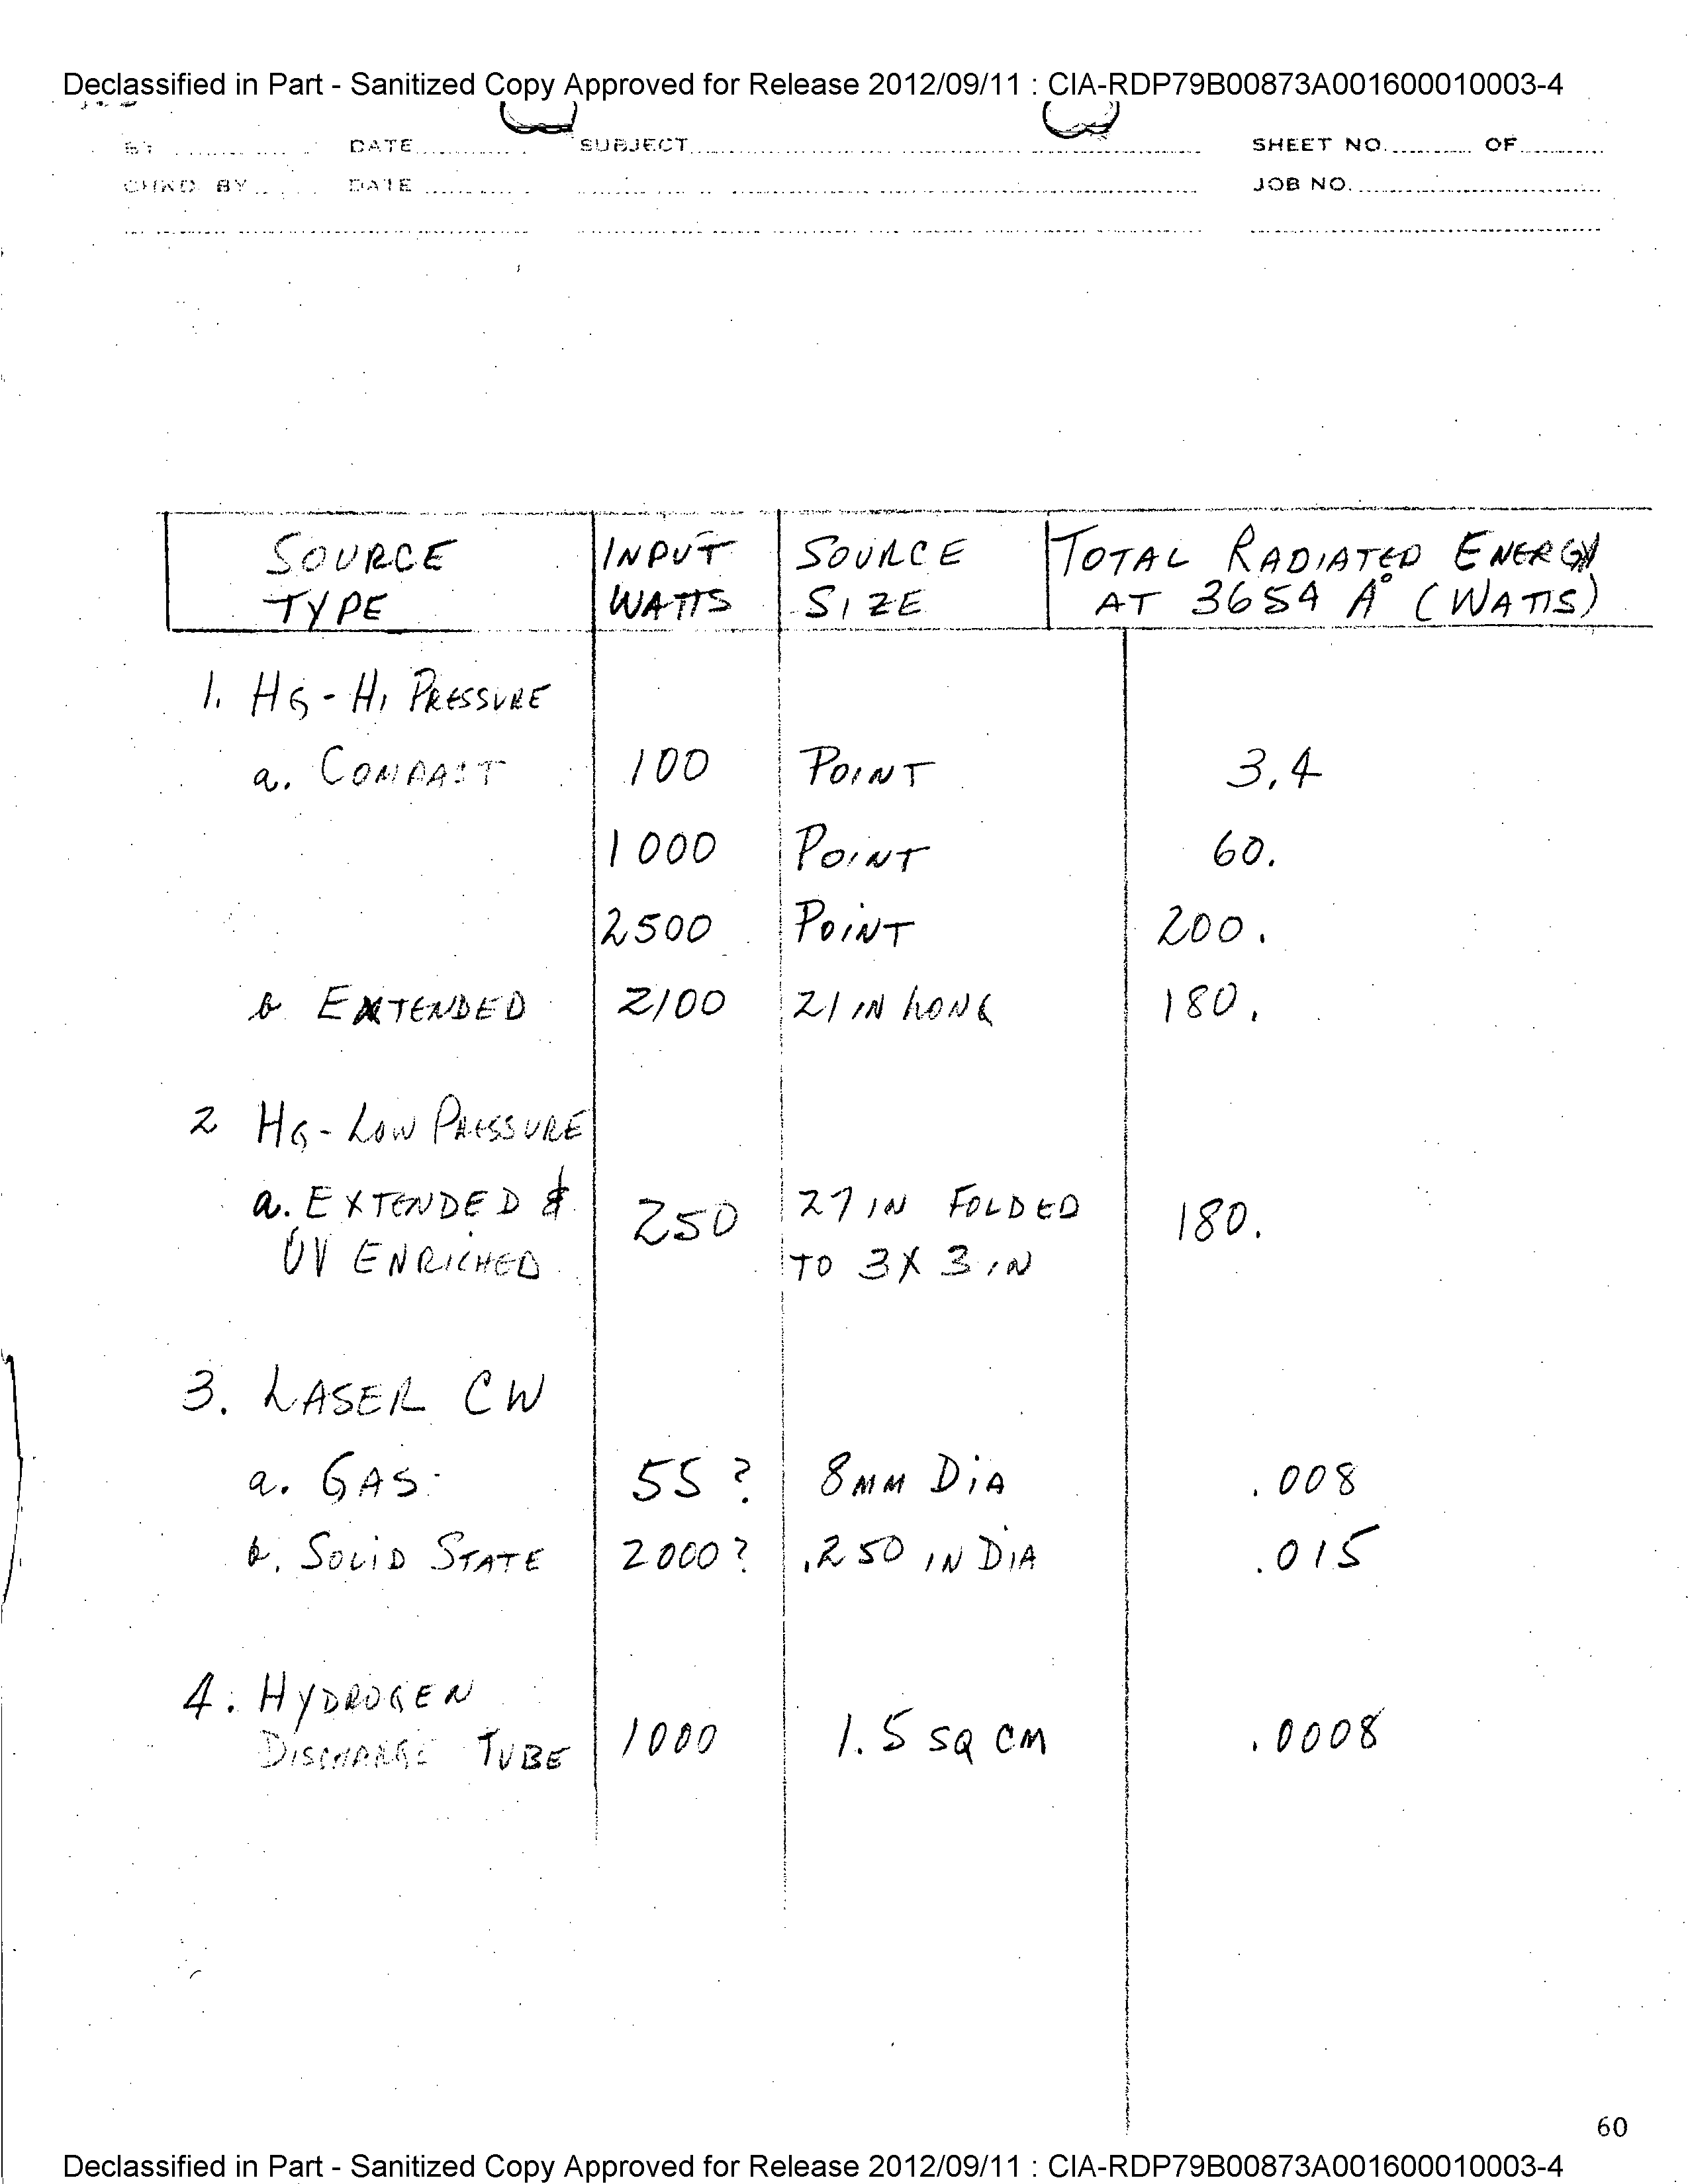 Declassified in Part - Sanitized Copy Approved for Release 2012/09/11 : CIA-RDP79B00873A001600010003-4
BY DATE SUBJECT SHEET NO. OF
CHKD. BY DATE JOB NO.
SOURCE TYPE INPUT WATTS SOURCE SIZE TOTAL RADIATED ENERGY AT 3654 Å (WATTS)
1. HG - HI PRESSURE
a. COMPACT 100 POINT 3.4
1000 POINT 60.
2500 POINT 200.
b EXTENDED 2100 21 IN LONG 180.
2 HG - LOW PRESSURE
a. EXTENDED & 250 27 IN FOLDED 180.
UV ENRICHED TO 3X 3 IN
3. LASER CW
a. GAS 55 ? 8MM DIA .008
b. SOLID STATE 2000 ? .250 IN DIA .015
4. HYDROGEN
DISCHARGE TUBE 1000 1.5 SQ CM .0008
60
Declassified in Part - Sanitized Copy Approved for Release 2012/09/11 : CIA-RDP79B00873A001600010003-4